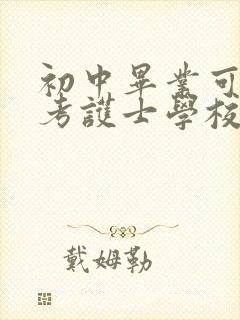 初中畢業可
考護士學校
戴姆勒